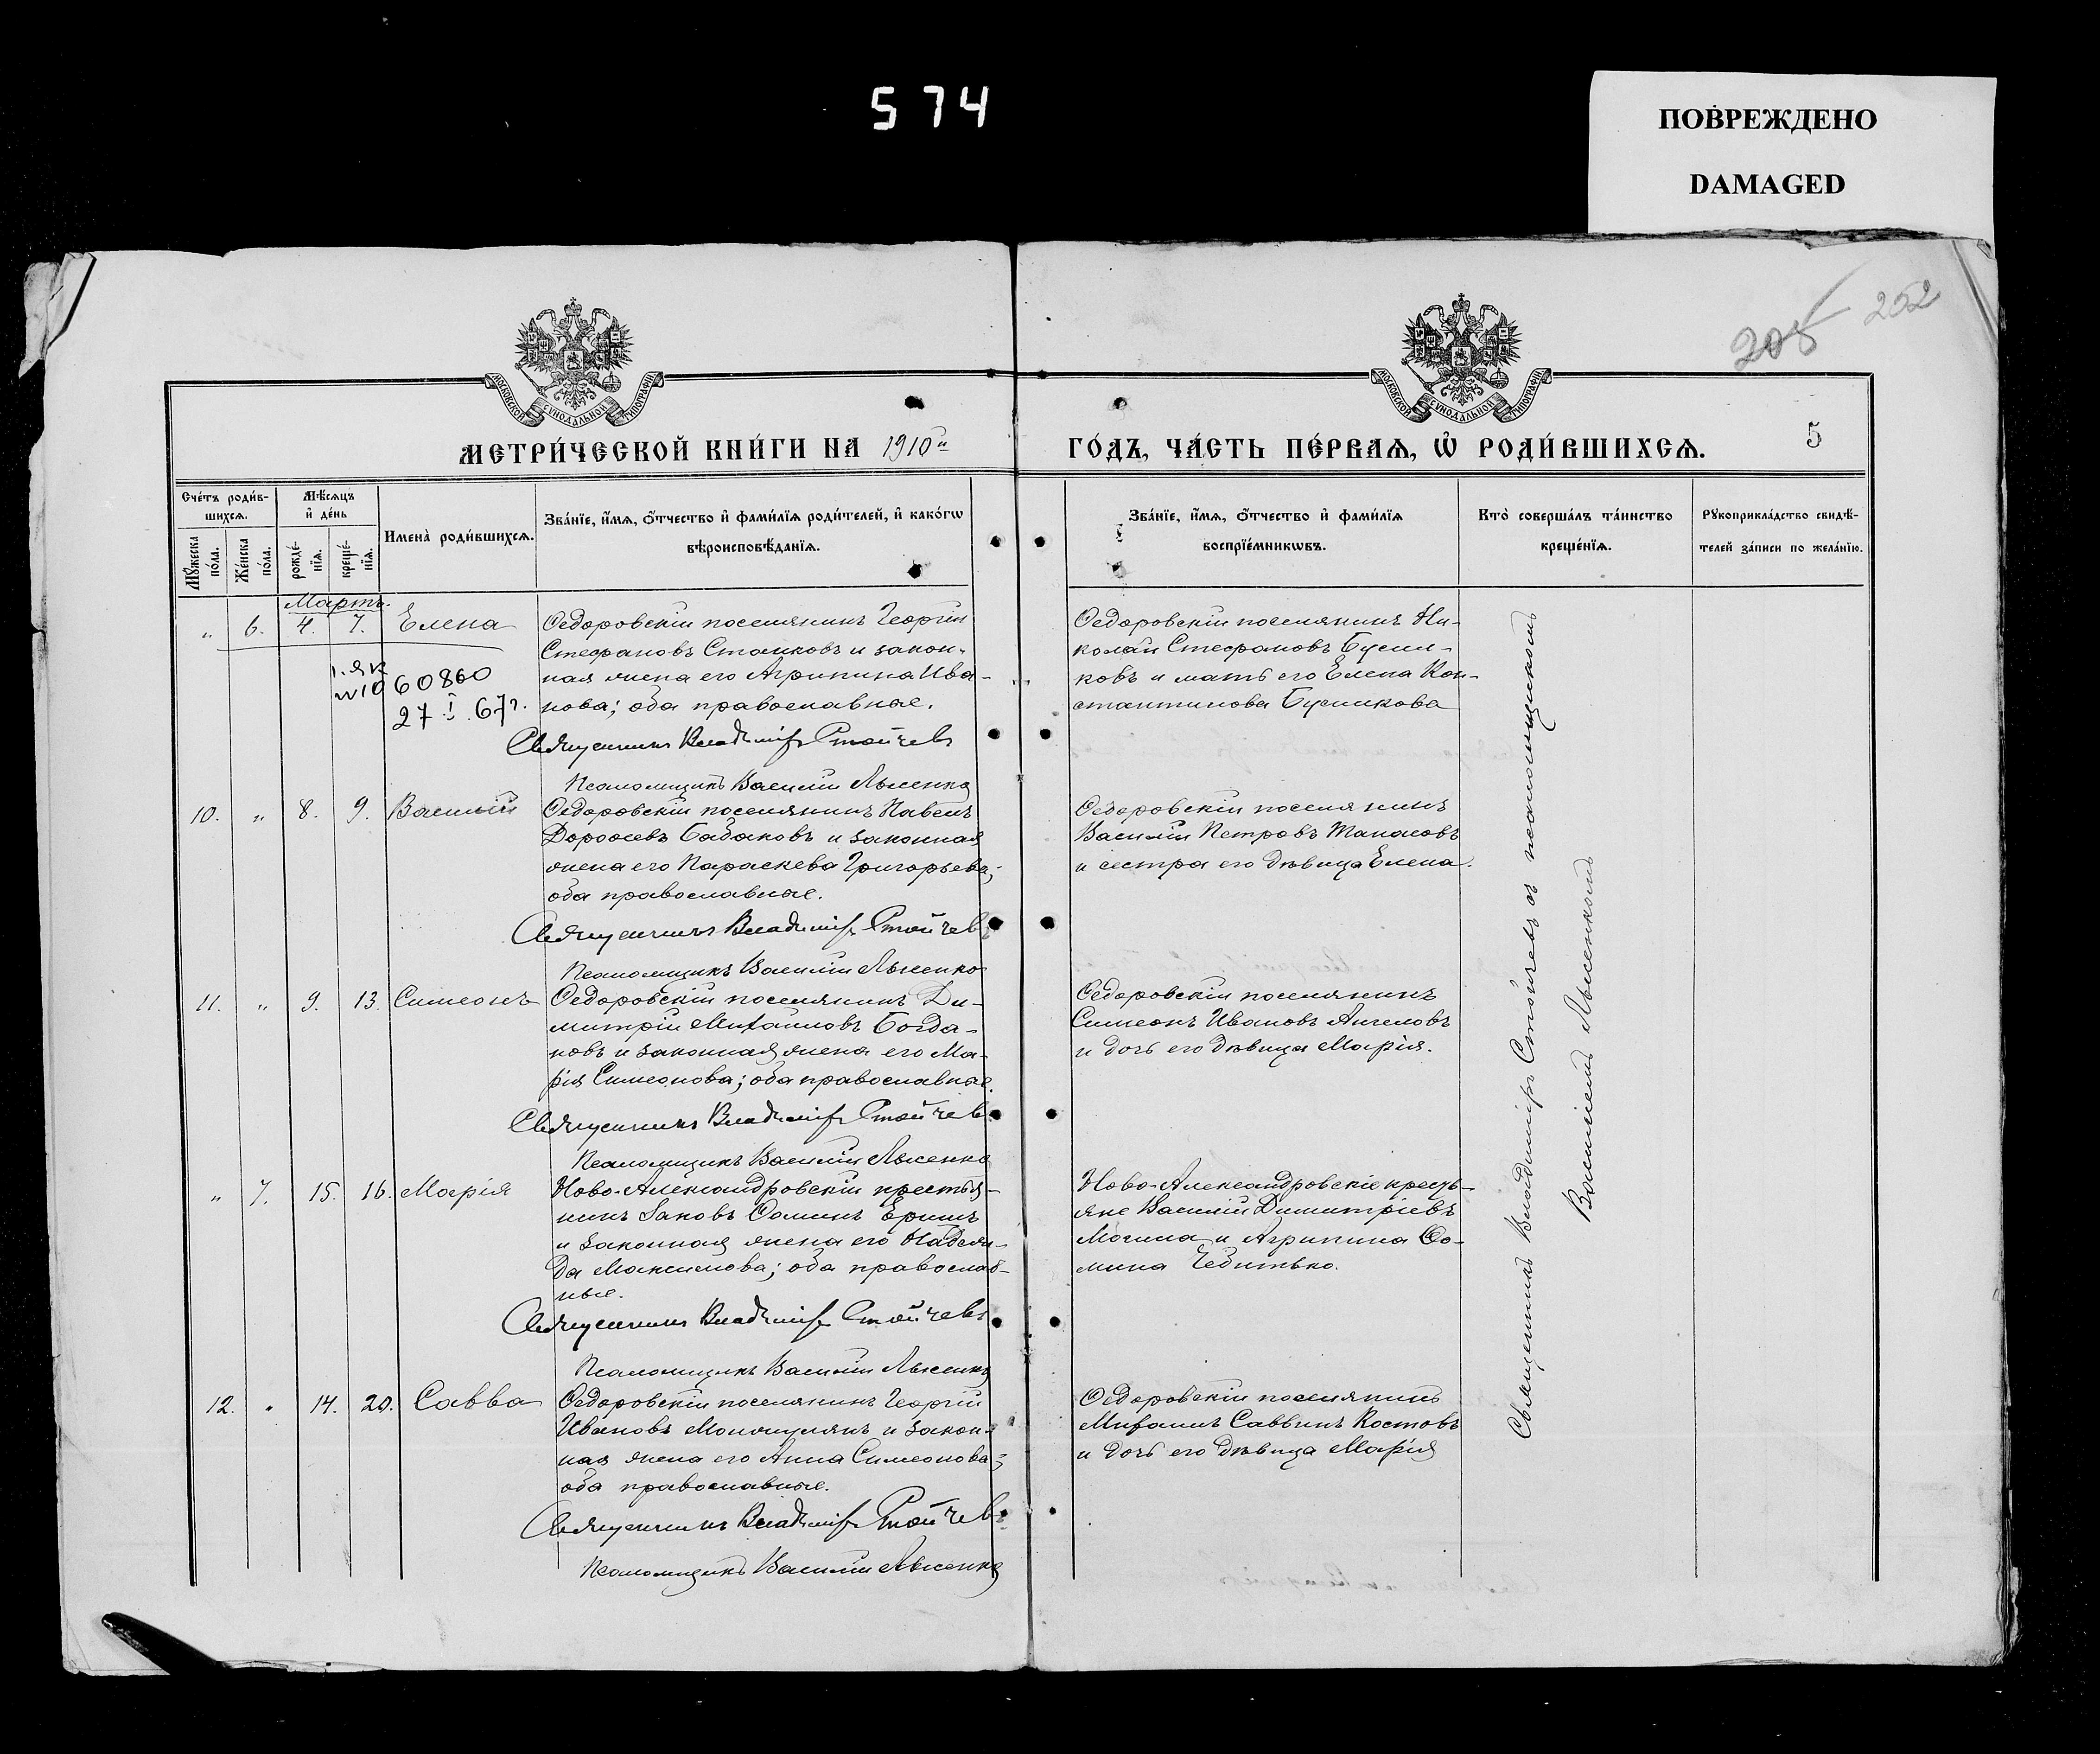 574
ПОВРЕЖДЕНО
DAMAGED
205 202
МОСКОВСКОЙ СѴНОДАЛЬНОЙ ТИПОГРАФІИ
МОСКОВСКОЙ СѴНОДАЛЬНОЙ ТИПОГРАФІИ
МЕТРИ́ЧЕСКОЙ КНИ́ГИ НА 1910й
ГО́ДЪ, ЧА́СТЬ ПЕ́РВАѦ, Ѡ҆ РОДИ́ВШИХСѦ.
5
Сче́тъ роди́в-
шихсѧ.
Мѣ́сѧцъ
и҆ де́нь
Мꙋ́жеска
по́ла.
Же́нска
по́ла.
рожде́-
нїѧ.
креще́-
нїѧ.
Имена̀ роди́вшихсѧ.
Зва́нїе, и҆́мѧ, ѻ҆́тчество и҆ фами́лїѧ роди́телей, и҆ како́гѡ
вѣроисповѣ́данїѧ.
Зва́нїе, и҆́мѧ, ѻ҆́тчество и҆ фами́лїѧ
воспрїе́мникѡвъ.
Кто̀ соверша́лъ та́инство
креще́нїѧ.
Рꙋкоприкла́дство свидѣ́-
телей за́писи по жела́нїю.
Мартъ.
„ 6. 4. 7. Елена
Ѳедоровскій поселянинъ Георгій
Стефановъ Стаиковъ и закон-
ная жена его Агрипина Ива-
нова; оба православные.
60860
27.I.67г.
Священникъ Владиміръ Стойчевъ
Псаломщикъ Василій Лысенко
Ѳедоровскій поселянинъ Ни-
колай Стефановъ Бусли-
ковъ и мать его Елена Кон-
стантинова Бусликова
10. „ 8. 9. Василій
Ѳедоровскій поселянинъ Павелъ
Дороѳевъ Бабаковъ и законная
жена его Параскева Григорьева;
оба православные.
Священникъ Владиміръ Стойчевъ
Псаломщикъ Василій Лысенко
Ѳедоровскій поселянинъ
Василій Петровъ Танасовъ
и сестра его дѣвица Елена.
11. „ 9. 13. Симеонъ
Ѳедоровскій поселянинъ Ди-
митрій Михаиловъ Богда-
новъ и законная жена его Ма-
рія Симеонова; оба православные.
Священникъ Владиміръ Стойчевъ
Псаломщикъ Василій Лысенко
Ѳедоровскій поселянинъ
Симеонъ Ивановъ Ангеловъ
и дочь его дѣвица Марія.
„ 7. 15. 16. Марія
Ново-Александровскій крестья-
нинъ Іаковъ Ѳоминъ
и законная жена его Надеж-
да Максимова; оба православ-
ные.
Священникъ Владиміръ Стойчевъ
Псаломщикъ Василій Лысенко
Ново-Александровскіе кресть-
яне Василій Димитріевъ
Могила и Агрипина Ѳо-
мина
12. „ 14. 20. Савва
Ѳедоровскій поселянинъ Георгій
Ивановъ и закон-
ная жена его Анна Симеонова;
оба православные.
Священникъ Владиміръ Стойчевъ
Псаломщикъ Василій Лысенко
Ѳедоровскій поселянинъ
Михаилъ Саввинъ Костовъ
и дочь его дѣвица Марія
Священникъ Владиміръ Стойчевъ съ псаломщикомъ
Василіемъ Лысенкомъ